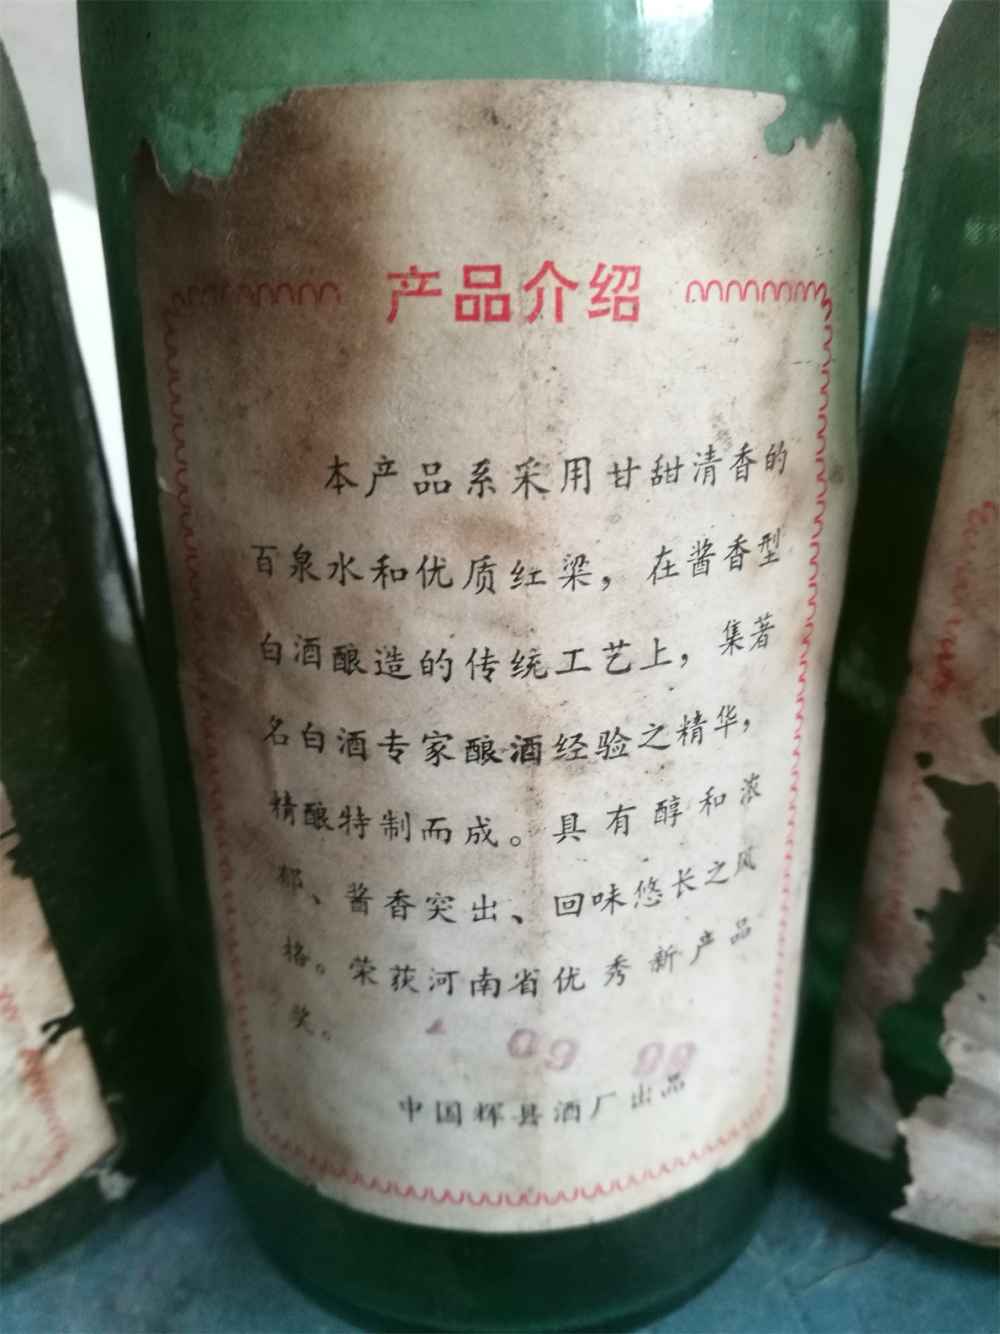 产品介绍
本产品系采用甘甜清香的
百泉水和优质红梁，在酱香型
白酒酿造的传统工艺上，集著
名白酒专家酿酒经验之精华，
精酿特制而成。具有醇和浓
郁、酱香突出、回味悠长之风
格。荣获河南省优秀新产品
奖。
中国辉县酒厂出品